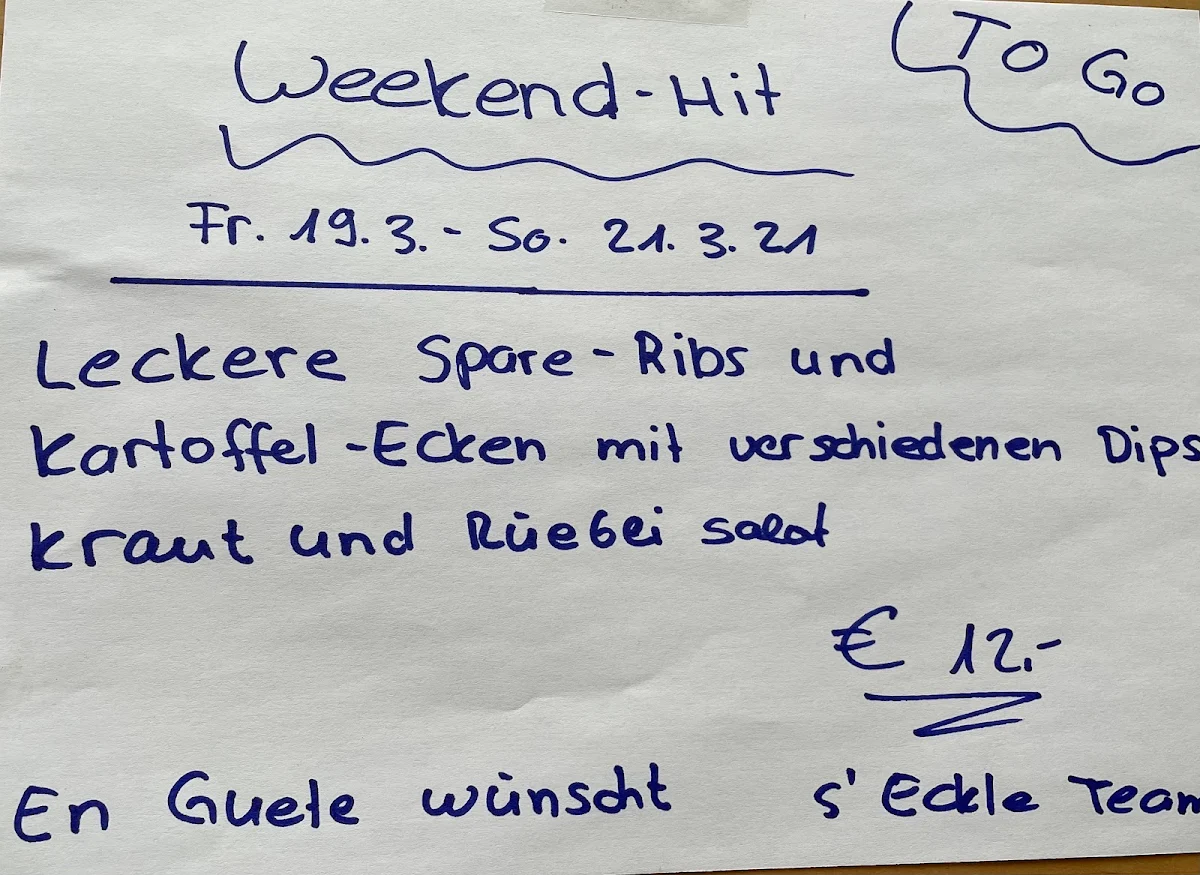 Weekend-Hit
To Go
Fr. 19.3.- So. 21.3.21
Leckere Spare-Ribs und
Kartoffel-Ecken mit verschiedenen Dips
Kraut und Rüebei salat
€ 12.-
En Guete wünscht s' Eckle Team